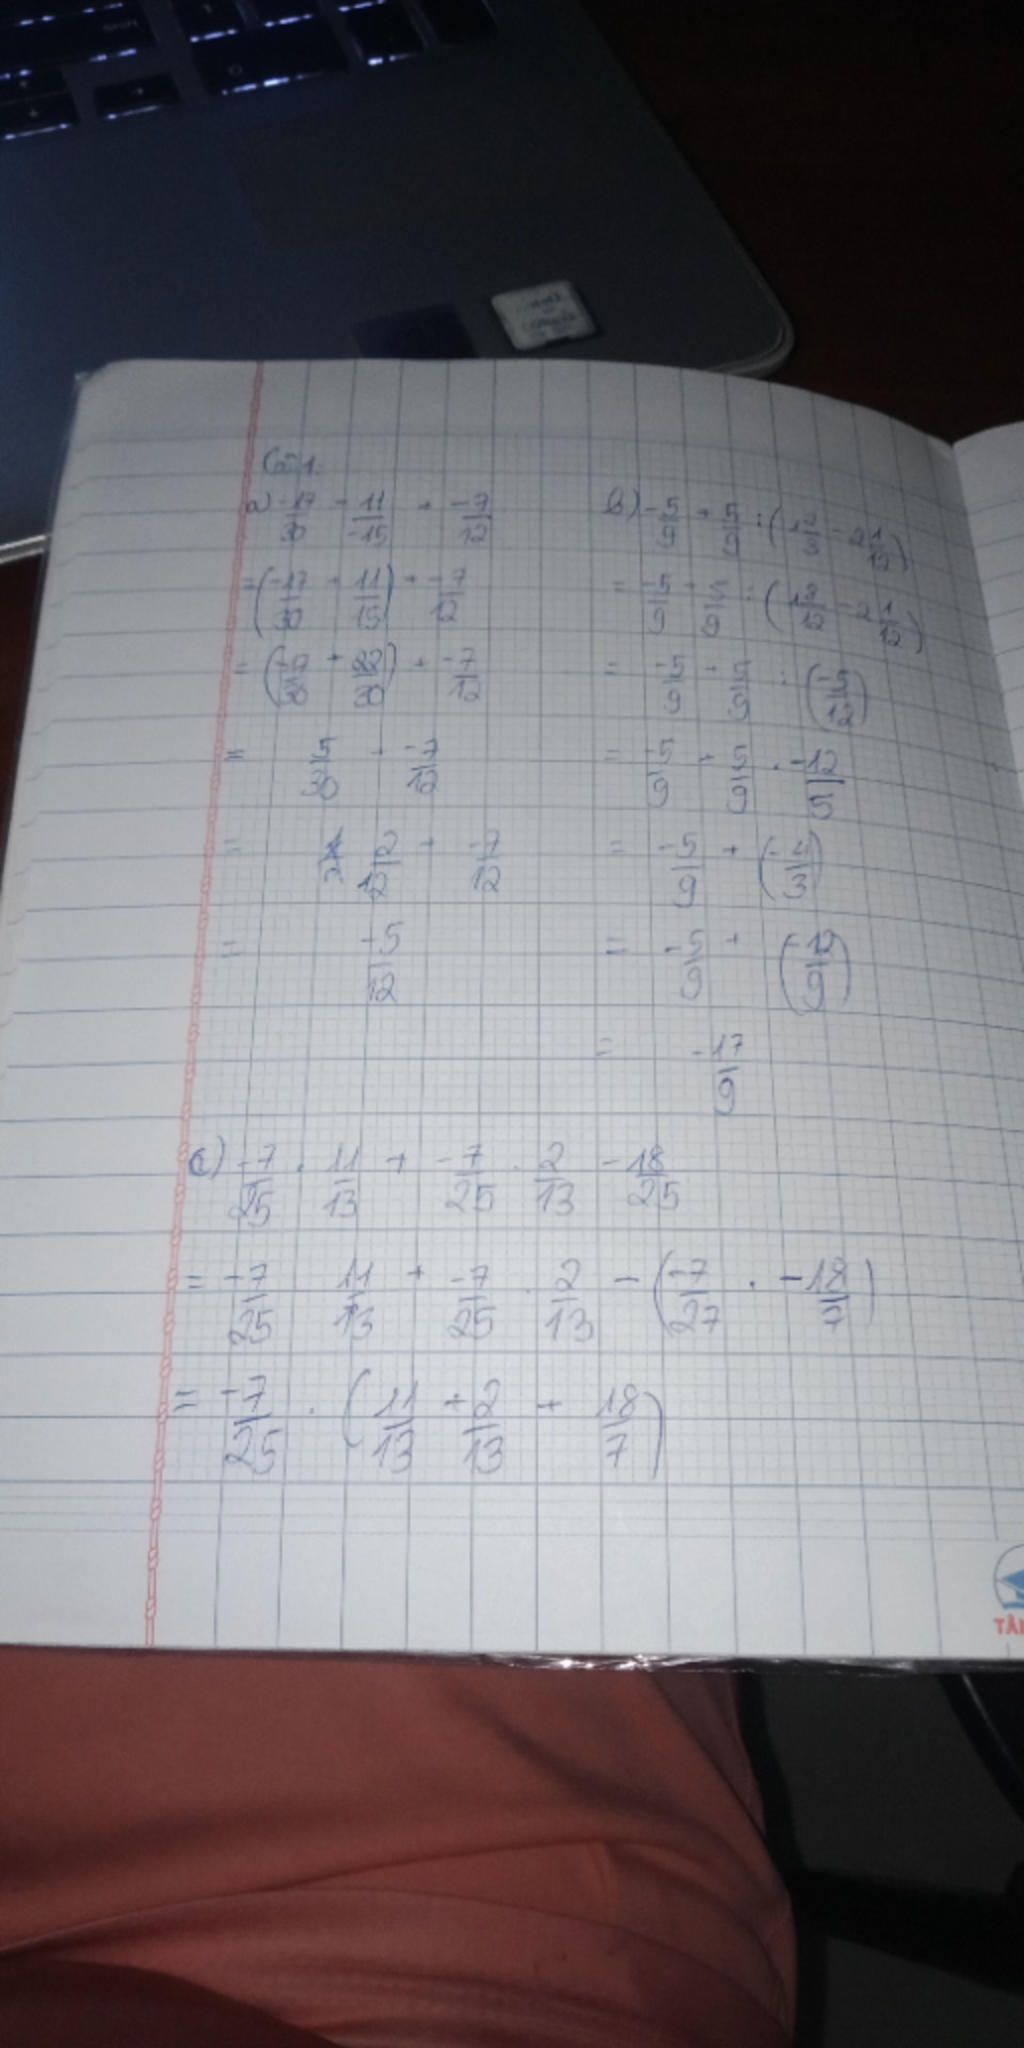 Câu 1:
a) -17/30 - 11/-15 + -7/12
= (-17/30 + 11/15) + -7/12
= (-17/30 + 22/30) + -7/12
= 5/30 + -7/12
= 2/12 + -7/12
= -5/12
b) -5/9 + 5/9 : (1 2/3 - 2 1/12)
= -5/9 + 5/9 : (1 8/12 - 2 1/12)
= -5/9 + 5/9 : (-5/12)
= -5/9 + 5/9 . -12/5
= -5/9 + (-4/3)
= -5/9 + (-12/9)
= -17/9
c) -7/25 . 11/13 + -7/25 . 2/13 - 18/25
= -7/25 . 11/13 + -7/25 . 2/13 - (-7/27 . -18/7)
= -7/25 . (11/13 + 2/13 + 18/7)